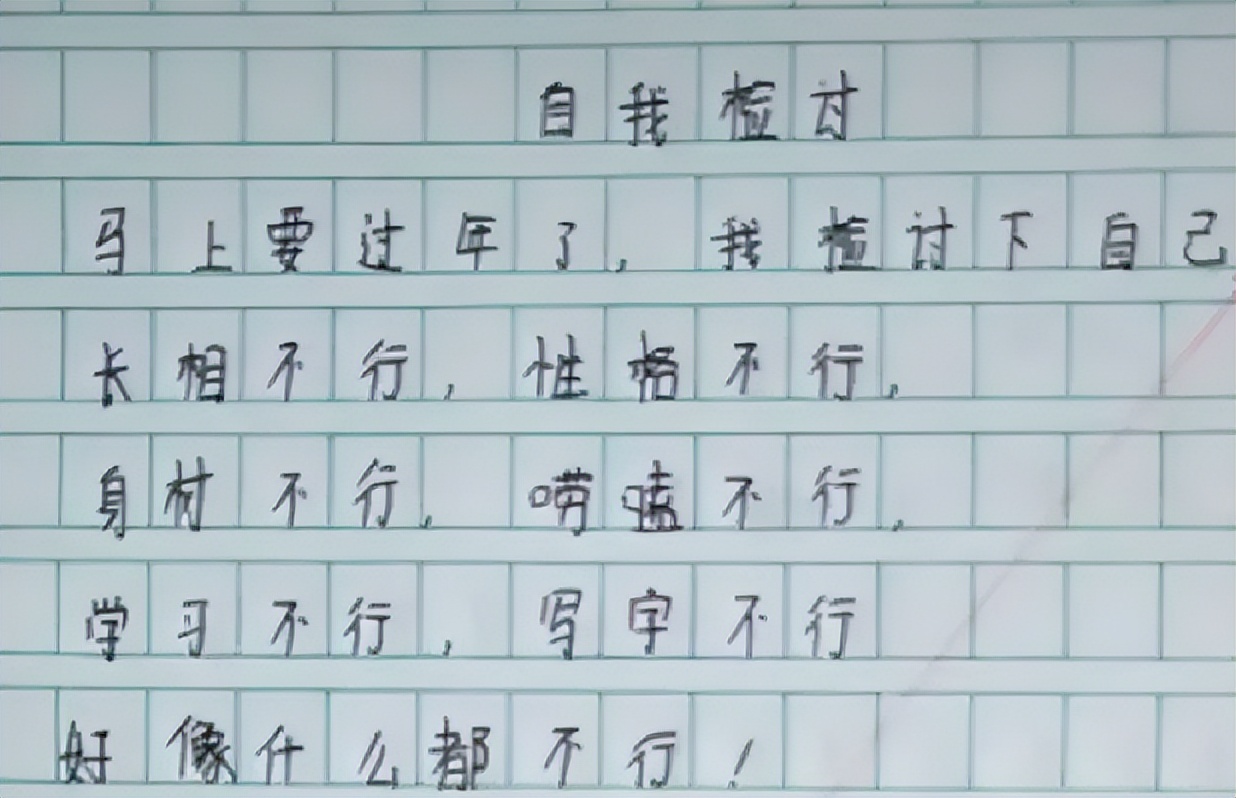 自我检讨
马上要过年了,我检讨下自己
长相不行,性格不行,
身材不行,唠嗑不行,
学习不行,写字不行
好像什么都不行!